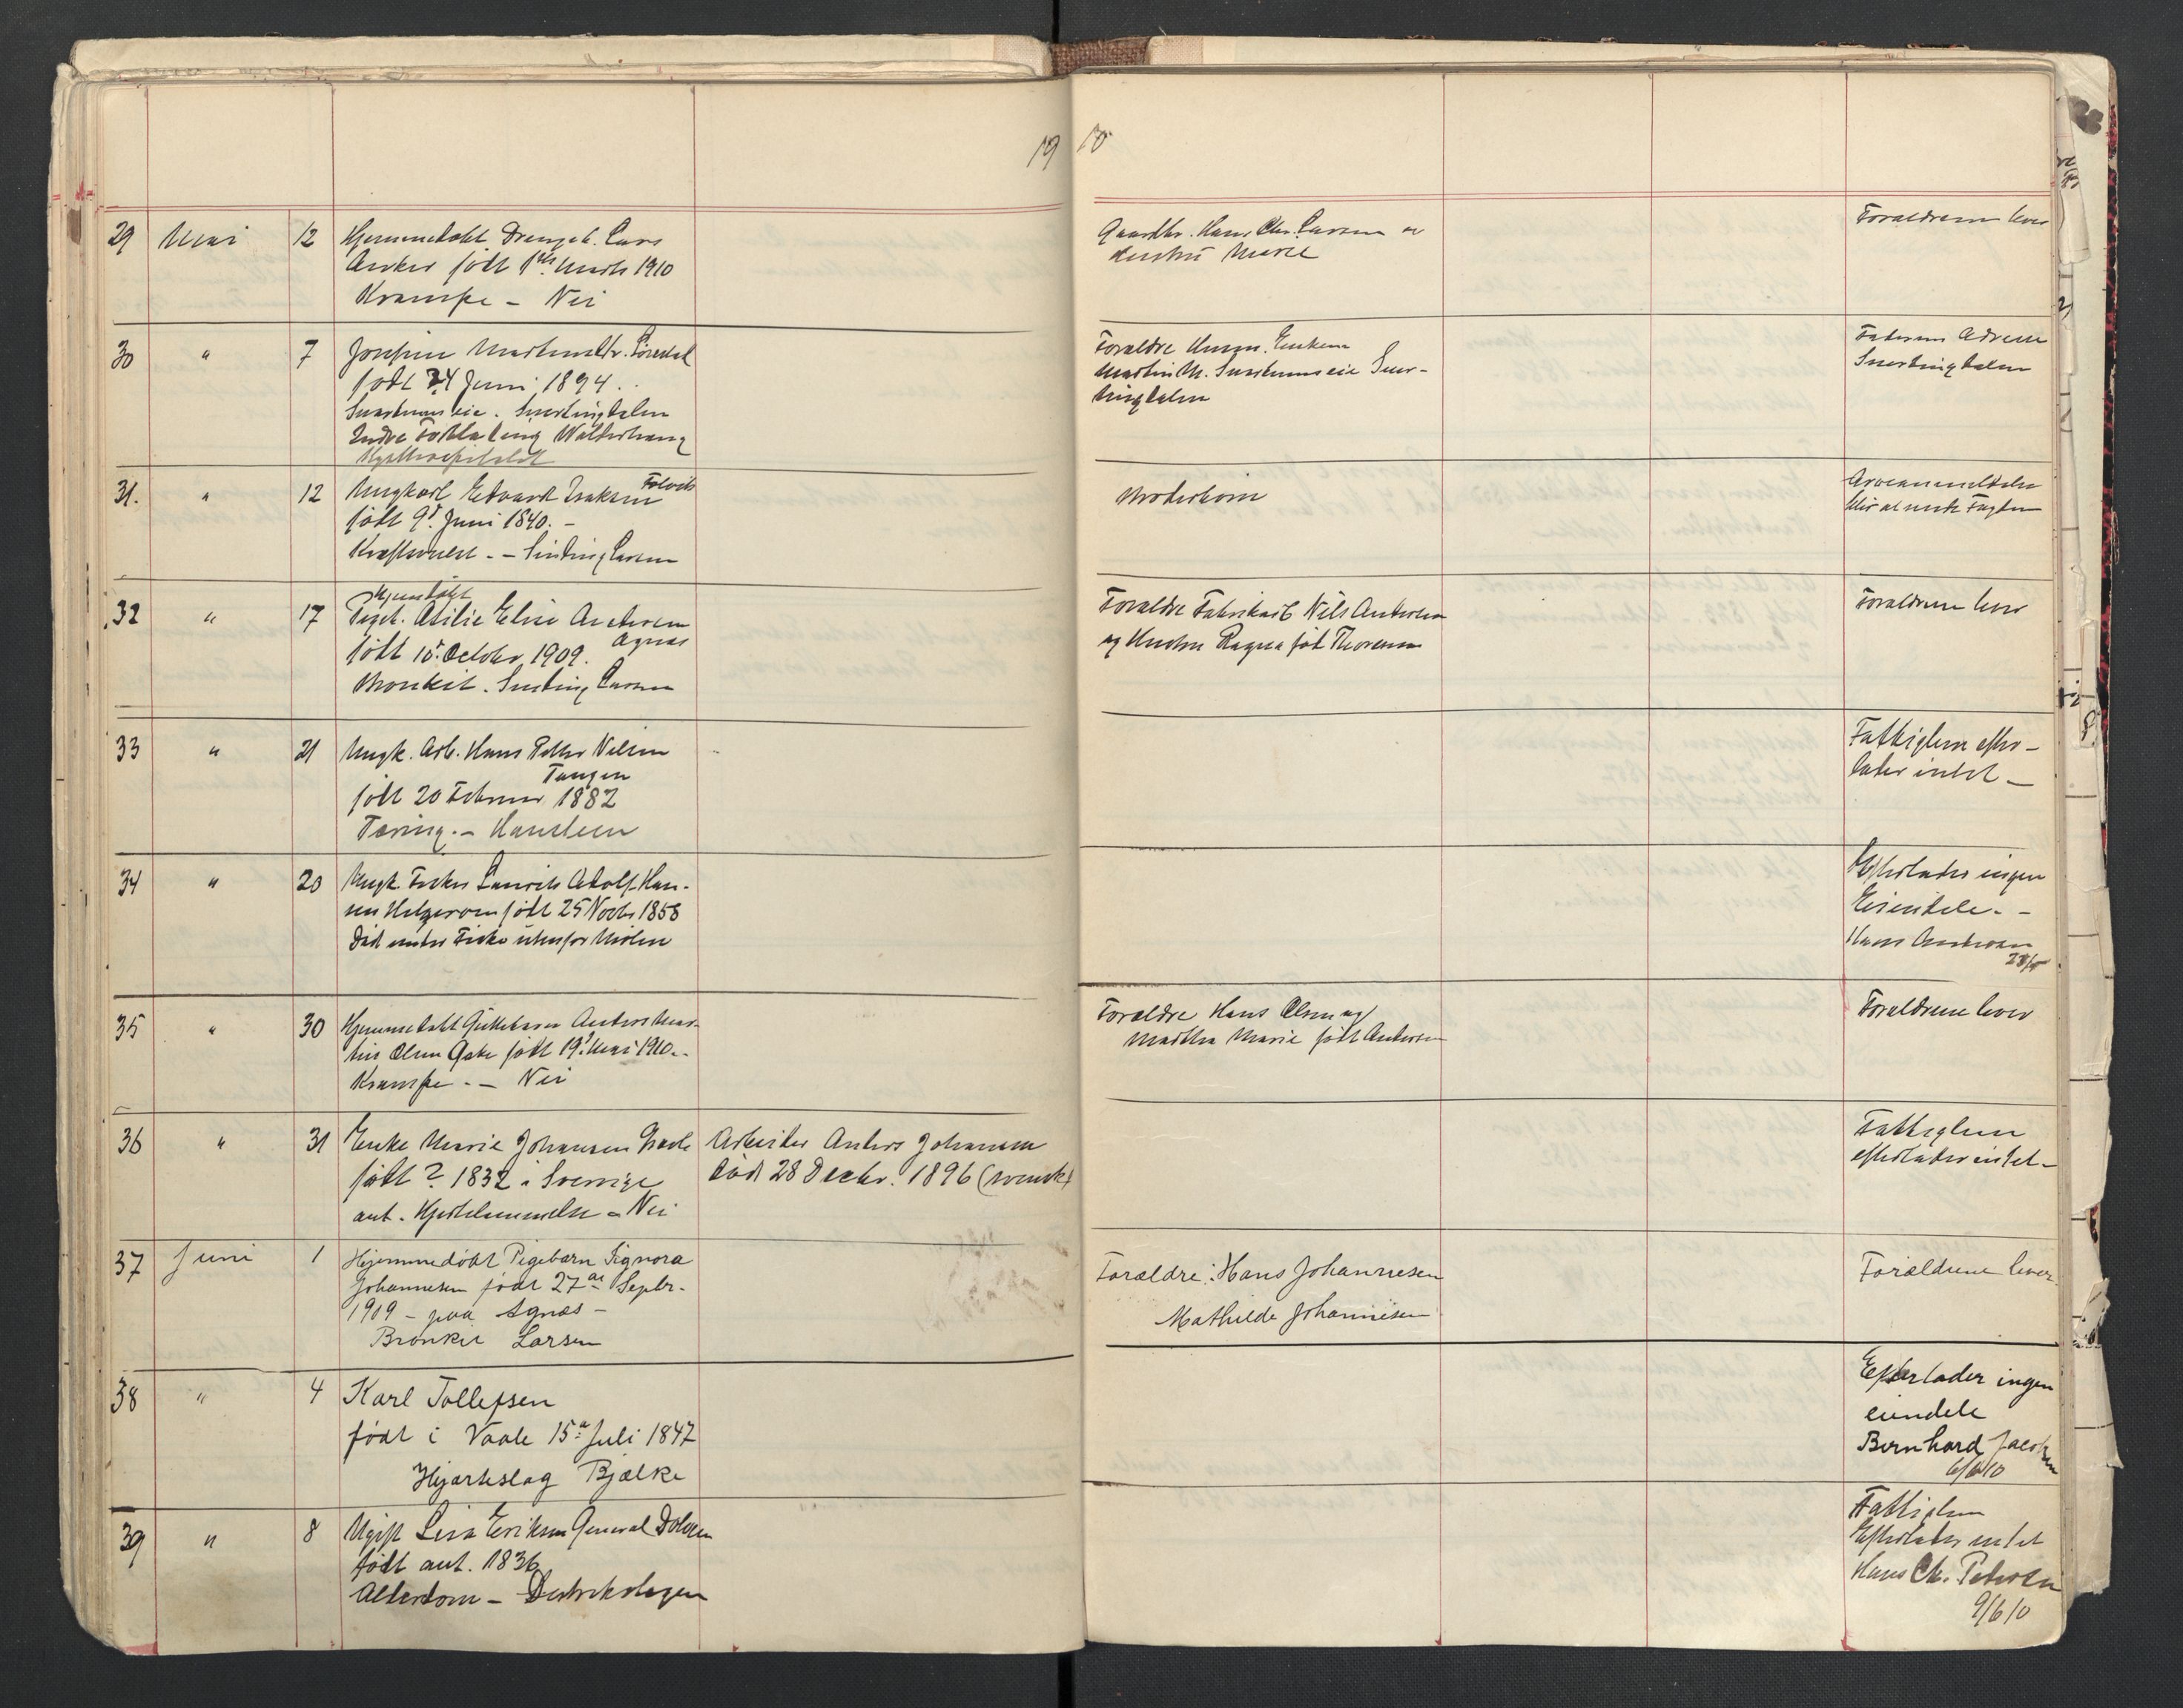 19 10
29 Mai 12 Hjemmedøbt Drengeb. Lars
Anker født 1ste Marts 1910
Krampe - Nei
Gaardbr. Hans Chr. Larsen og
Hustru Marie
Forældrene lever
30 " 7 Josefine Martinsdtr.
født 24 Juni 1894.
Snertingdalen
Indre
Forældre
Martin M. Sner-
tingdalen
Faderens Adresse
Snertingdalen
31. " 12 Ungkarl Edvard Isaksen
født 9d Juni 1840. -
Kræftsvulst. - Sinding Larsen
Moderløse
32 " 17 Hjemdøbt
Pigeb. Asilie Elise Andersen
Agnæs
født 15 October 1909.
Bronkit. Sinding Larsen
Forældre Fabrikarb. Nils Andersen
og Hustru Ragna fød Thorsen
Forældrene lever
33 " 21 Ungk. Arb. Hans Petter Nilsen
Tangen
født 20 Februar 1882
Tæring. - Hanssteen
Fattiglem efter-
lader intet -
34 " 20 Ungk. Fisker Laurits Adolf Han-
sen Helgeroen født 25 Novbr 1858
Død under Fiske udenfor Mølen
Efterlader ingen
Eiendele. -
Hans Andersen
35 " 30 Hjemmedøbt Guttebarn Anders Mar-
tin Olsen født 19d Mai 1910. -
Krampe. - Nei
Forældre Hans Olsen og
Martha Marie født Andersen
Forældrene lever
36 " 31 Enke Marie Johansen
født ? 1832 i Sverrige
ant. Hjertelammelse - Nei
Arbeider Anders Johansen
død 28 Decbr. 1896 (svensk)
Fattiglem
efterlader intet -
37 Juni 1 Hjemmedøbt Pigebarn Signora
Johannesen født 27de Septbr.
1909 - paa Agnæs -
Bronkit Larsen
Forældre: Hans Johannesen
Mathilde Johannesen
Forældrene lever
38 " 4 Karl Tollefsen
født i Vaale 15de Juli 1847
Hjærteslag Bjælke
Efterlader ingen
eiendele
Bernhard Jacobsen
6/6 10
39 " 8 Ugift Lisa Eriksen General Dolven
født ant. 1836
Alderdom - Destriktslægen
Fattiglem
Efterlader intet
Hans Chr. Pedersen
9/6 10